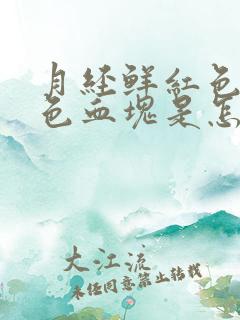 月经鲜红色
色血块是怎
大江流
未经同意禁止转载